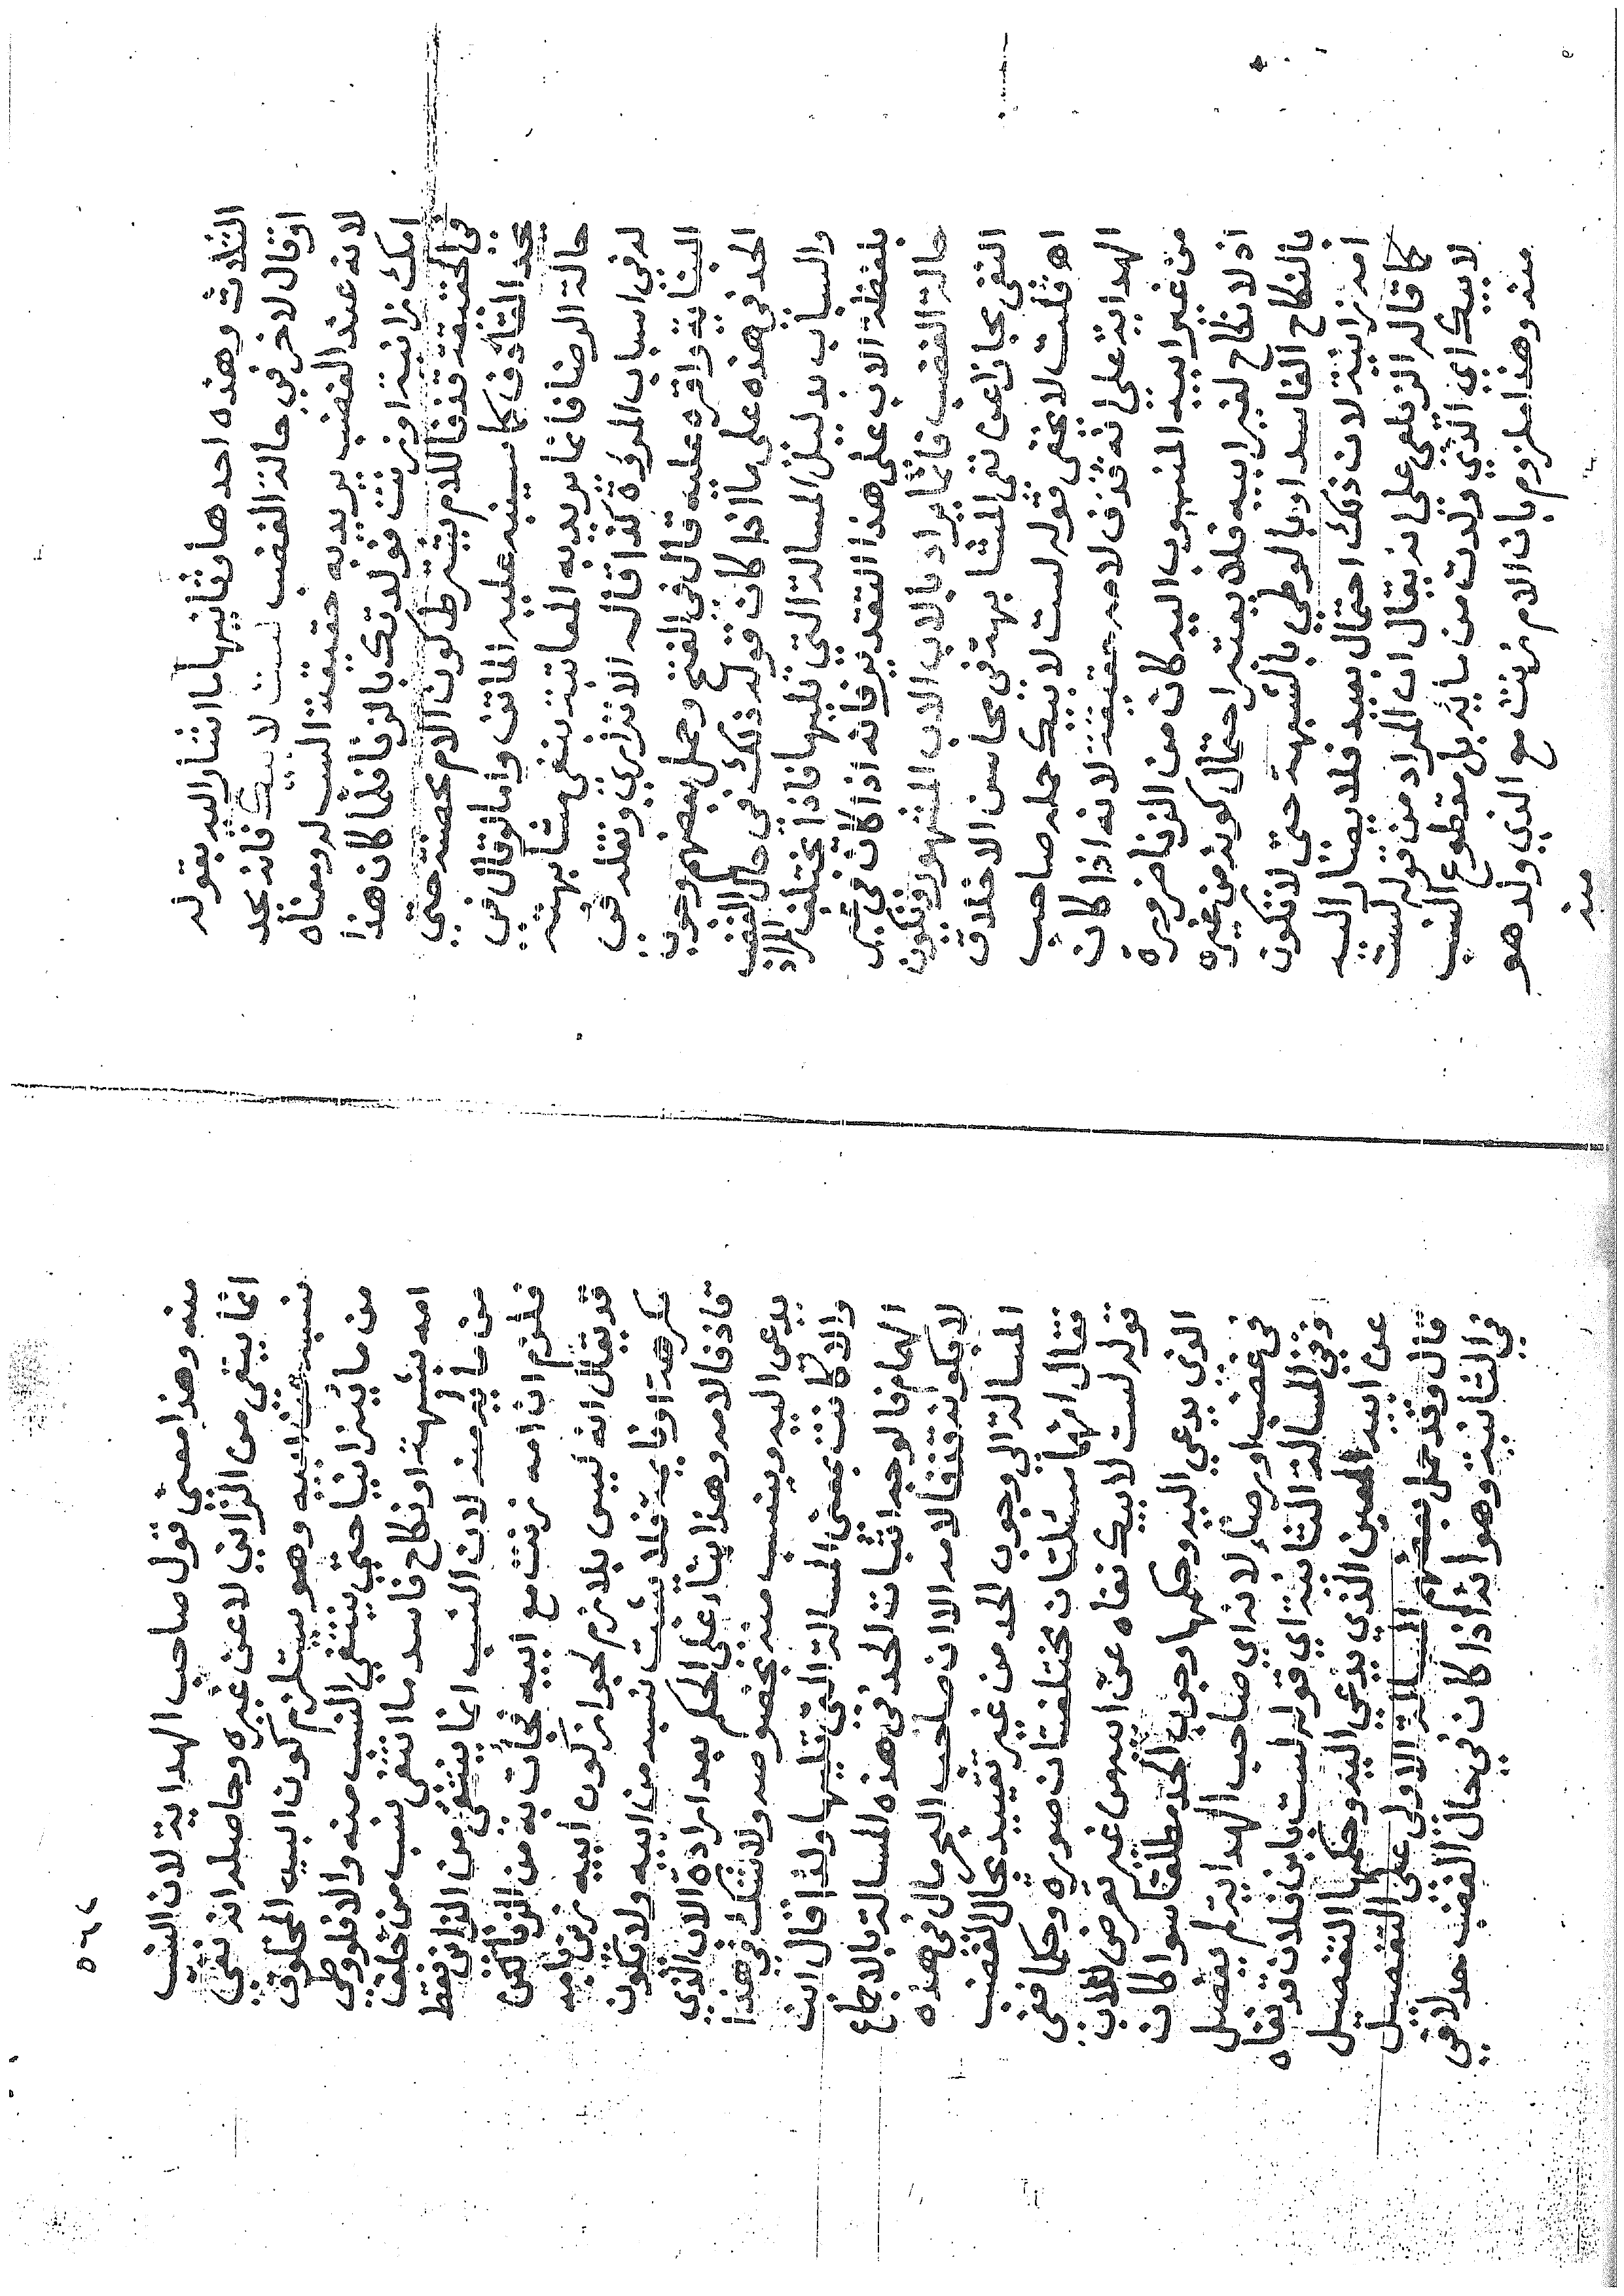 الثلاث وهذه احدها وثانيها ما اشار اليه بقوله
اوقال لاخر في حالة الغضب لست لابيك فانه يحد
لانه عند الغضب يريد به حقيقة السب له ومعناه
امك زانية او زنت فولدتك بالزنا فلما كان هذا
في الحقيقة قذفا للام يشترط كون الام محصنة حتى
يحد القاذف كما سينبه عليه الماتن واما لو قال في
حالة الرضا فانما يريد به المعاتبة بنفي مشابهته
له في اسباب المروءة كذا قاله الاتزاري ونقله في
الشانية واقره عليه قال في الفتح وحمل بعضهم وجوب
الحد في هذه على ما اذا كان قوله ذلك في حال الغضب
والسباب بدليل المسالة التي تليها فاذا يختلف المراد
بلفظة الاب على هذا التقدير فانه اذا كان في غير
حالة الغضب فانما يراد بالاب الاب المشهور فيكون
النفي مجازا عن نفي المشابهة في محاسن الاخلاق
اهـ قلت لا يخفى قوله لست لابيك حمله صاحب
الهداية على انه قذف لامه حقيقة لانه اذا كان
من غير ابيه المنسوب اليه كان من الزنا ضرورة
اذ لا نكاح لغير ابيه فلا يعتبر احتمال كونه من غيره
بالنكاح الفاسد او بالوطي بالشبهة حتى لا تكون
امه زانية لان ذلك احتمال بعيد فلا يصار اليه
كما قاله الزيلعي على انه يقال ان المراد من قوله لست
لابيك اي الذي ولدت من مائه بل مقطوع النسب
منه وهذا ملزوم بان الام زنت مع الذي ولد هو
منه
منه وهذا معنى قول صاحب الهداية لان النسب
انما ينتفي من الزاني لا عن غيره وحاصله انه نفي
نسبه عن ابيه وهو يستلزم كون ابيه المخلوق
من مائه زانيا حتى ينتفي النسب منه والا فلو وطي
امه بشبهة او نكاح فاسد ما انتفى نسب من خلف
من مائه منه لان النسب انما ينتفي من الزاني فقط
فلزم ان امه زنت مع ابيه فجأت به من الزنا لكن
قد يقال انه ليس بلازم لجواز كون ابيه زنى بامه
مكرهة او نائمة فلا يثبت نسبه من ابيه ولا يكون
قاذفا لامه وهذا بناء على الحكم بعد ارادة الاب الذي
يدعى اليه وينسب منه بخصوصه ولا شك في هذا
والا كانت بمعنى المسالة التي تليها ولذا قال ابن
الهمام فالوجه اثبات الحد في هذه المسالة بالاجماع
لا بكونه قذفا لامه الا ان صاحب البحر مال في هذه
المسالة الى وجوب الحد من غير تقييد بحال الغضب
فقال انهما مسئلتان مختلفتان صورة وحكما ففي
قوله لست لابيك نفاه عن ابيه من غير تعرض للاب
الذي يدعى اليه وحكمها وجوب الحد مطلقا سوا كان
في غضب او رضاء لانه اي صاحب الهداية لم يفصل
وفي المسالة الثانية اي قوله لست بابن فلان قد نفاه
عن ابيه المعين الذي يدعى اليه وحكمها التفصيل
قال وقد حمل بعضهم المسالة الاولى على التفصيل
في الثانية وهو انه اذا كان في حال الغضب حد لا في